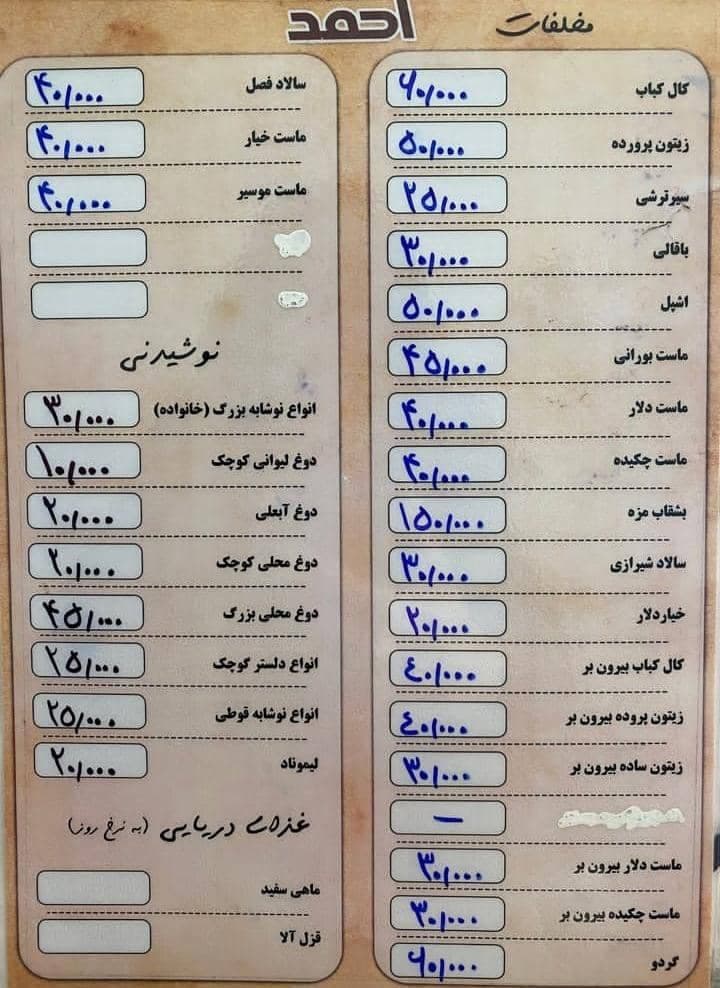 احمد
مخلفات
کال کباب ۶۰/۰۰۰
زیتون پرورده ۵۰/۰۰۰
سیرترشی ۲۵/۰۰۰
باقالی ۳۰/۰۰۰
اشپل ۵۰/۰۰۰
ماست بورانی ۴۵/۰۰۰
ماست دلار ۴۰/۰۰۰
ماست چکیده ۴۰/۰۰۰
بشقاب مزه ۱۵۰/۰۰۰
سالاد شیرازی ۳۰/۰۰۰
خیاردلار ۲۰/۰۰۰
کال کباب بیرون بر ٤۰/۰۰۰
زیتون پروده بیرون بر ٤۰/۰۰۰
زیتون ساده بیرون بر ۳۰/۰۰۰
—
ماست دلار بیرون بر ۳۰/۰۰۰
ماست چکیده بیرون بر ۳۰/۰۰۰
گردو ۶۰/۰۰۰
سالاد فصل ۴۰/۰۰۰
ماست خیار ۴۰/۰۰۰
ماست موسیر ۴۰/۰۰۰
نوشیدنی
انواع نوشابه بزرگ (خانواده) ۳۰/۰۰۰
دوغ لیوانی کوچک ۱۰/۰۰۰
دوغ آبعلی ۲۰/۰۰۰
دوغ محلی کوچک ۲۰/۰۰۰
دوغ محلی بزرگ ۴۵/۰۰۰
انواع دلستر کوچک ۲۵/۰۰۰
انواع نوشابه قوطی ۲۵/۰۰۰
لیموناد ۲۰/۰۰۰
غذای دریایی (به نرخ روز)
ماهی سفید
قزل آلا